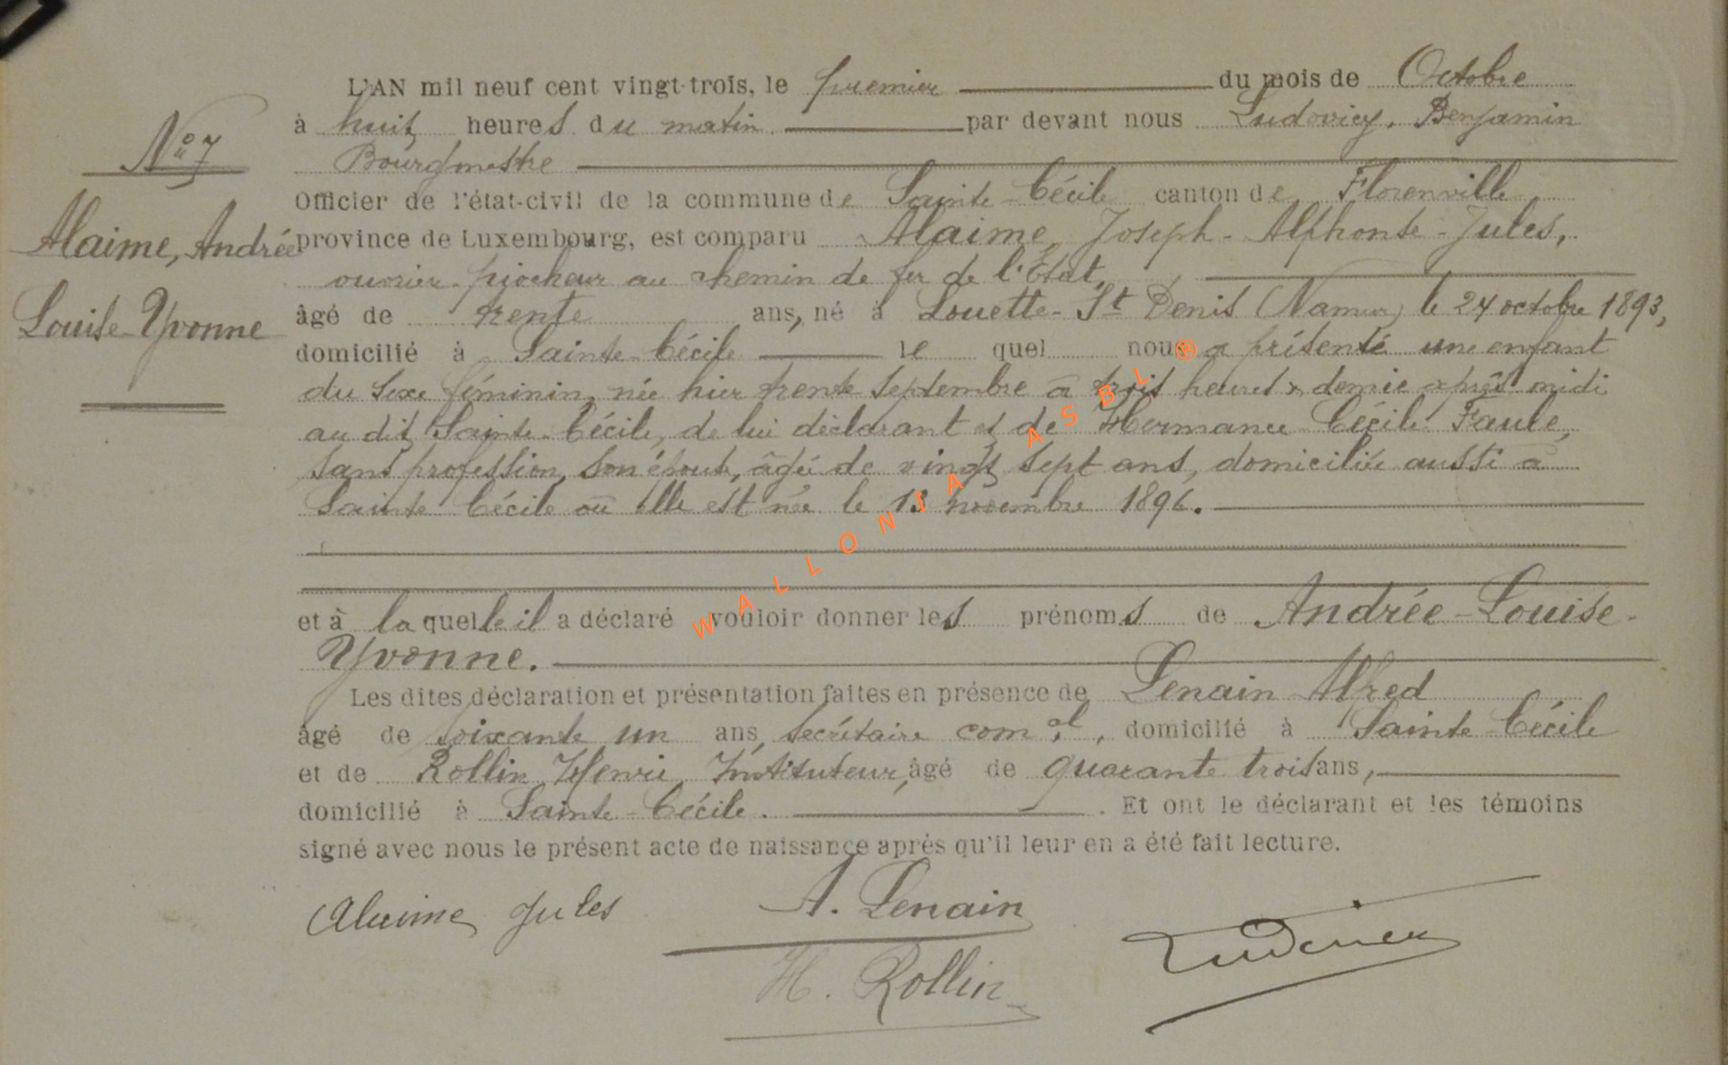 L'AN mil neuf cent vingt-trois, le premier du mois de Octobre
à huit heures du matin par devant nous Ludovicy, Benjamin
Bourgmestre
N° 7
Officier de l'état-civil de la commune de Sainte-Cécile canton de Florenville
Alaime, Andrée
Louise-Yvonne
province de Luxembourg, est comparu Alaime, Joseph-Alphonse-Jules,
ouvrier piocheur au chemin de fer de l'Etat,
âgé de trente ans, né à Louette-St Denis (Namur) le 24 octobre 1893,
domicilié à Sainte-Cécile lequel nous a présenté une enfant
du sexe féminin, née hier trente septembre à trois heures & demie après midi
au dit Sainte-Cécile, de lui déclarant et de Hermance Cécile Faule,
sans profession, son épouse, âgée de vingt sept ans, domiciliée aussi à
Sainte Cécile où elle est née le 13 novembre 1896.
et à laquelle il a déclaré vouloir donner les prénoms de Andrée-Louise-
Yvonne.
Les dites déclaration et présentation faites en présence de Lenain Alfred
âgé de soixante un ans, secrétaire com.al, domicilié à Sainte-Cécile
et de Rollin, Henri, Instituteur, âgé de quarante trois ans,
domicilié à Sainte-Cécile. Et ont le déclarant et les témoins
signé avec nous le présent acte de naissance après qu'il leur en a été fait lecture.
Alaime Jules
A. Lenain
H. Rollin
Ludovicy
WALLONIA ASBL ®